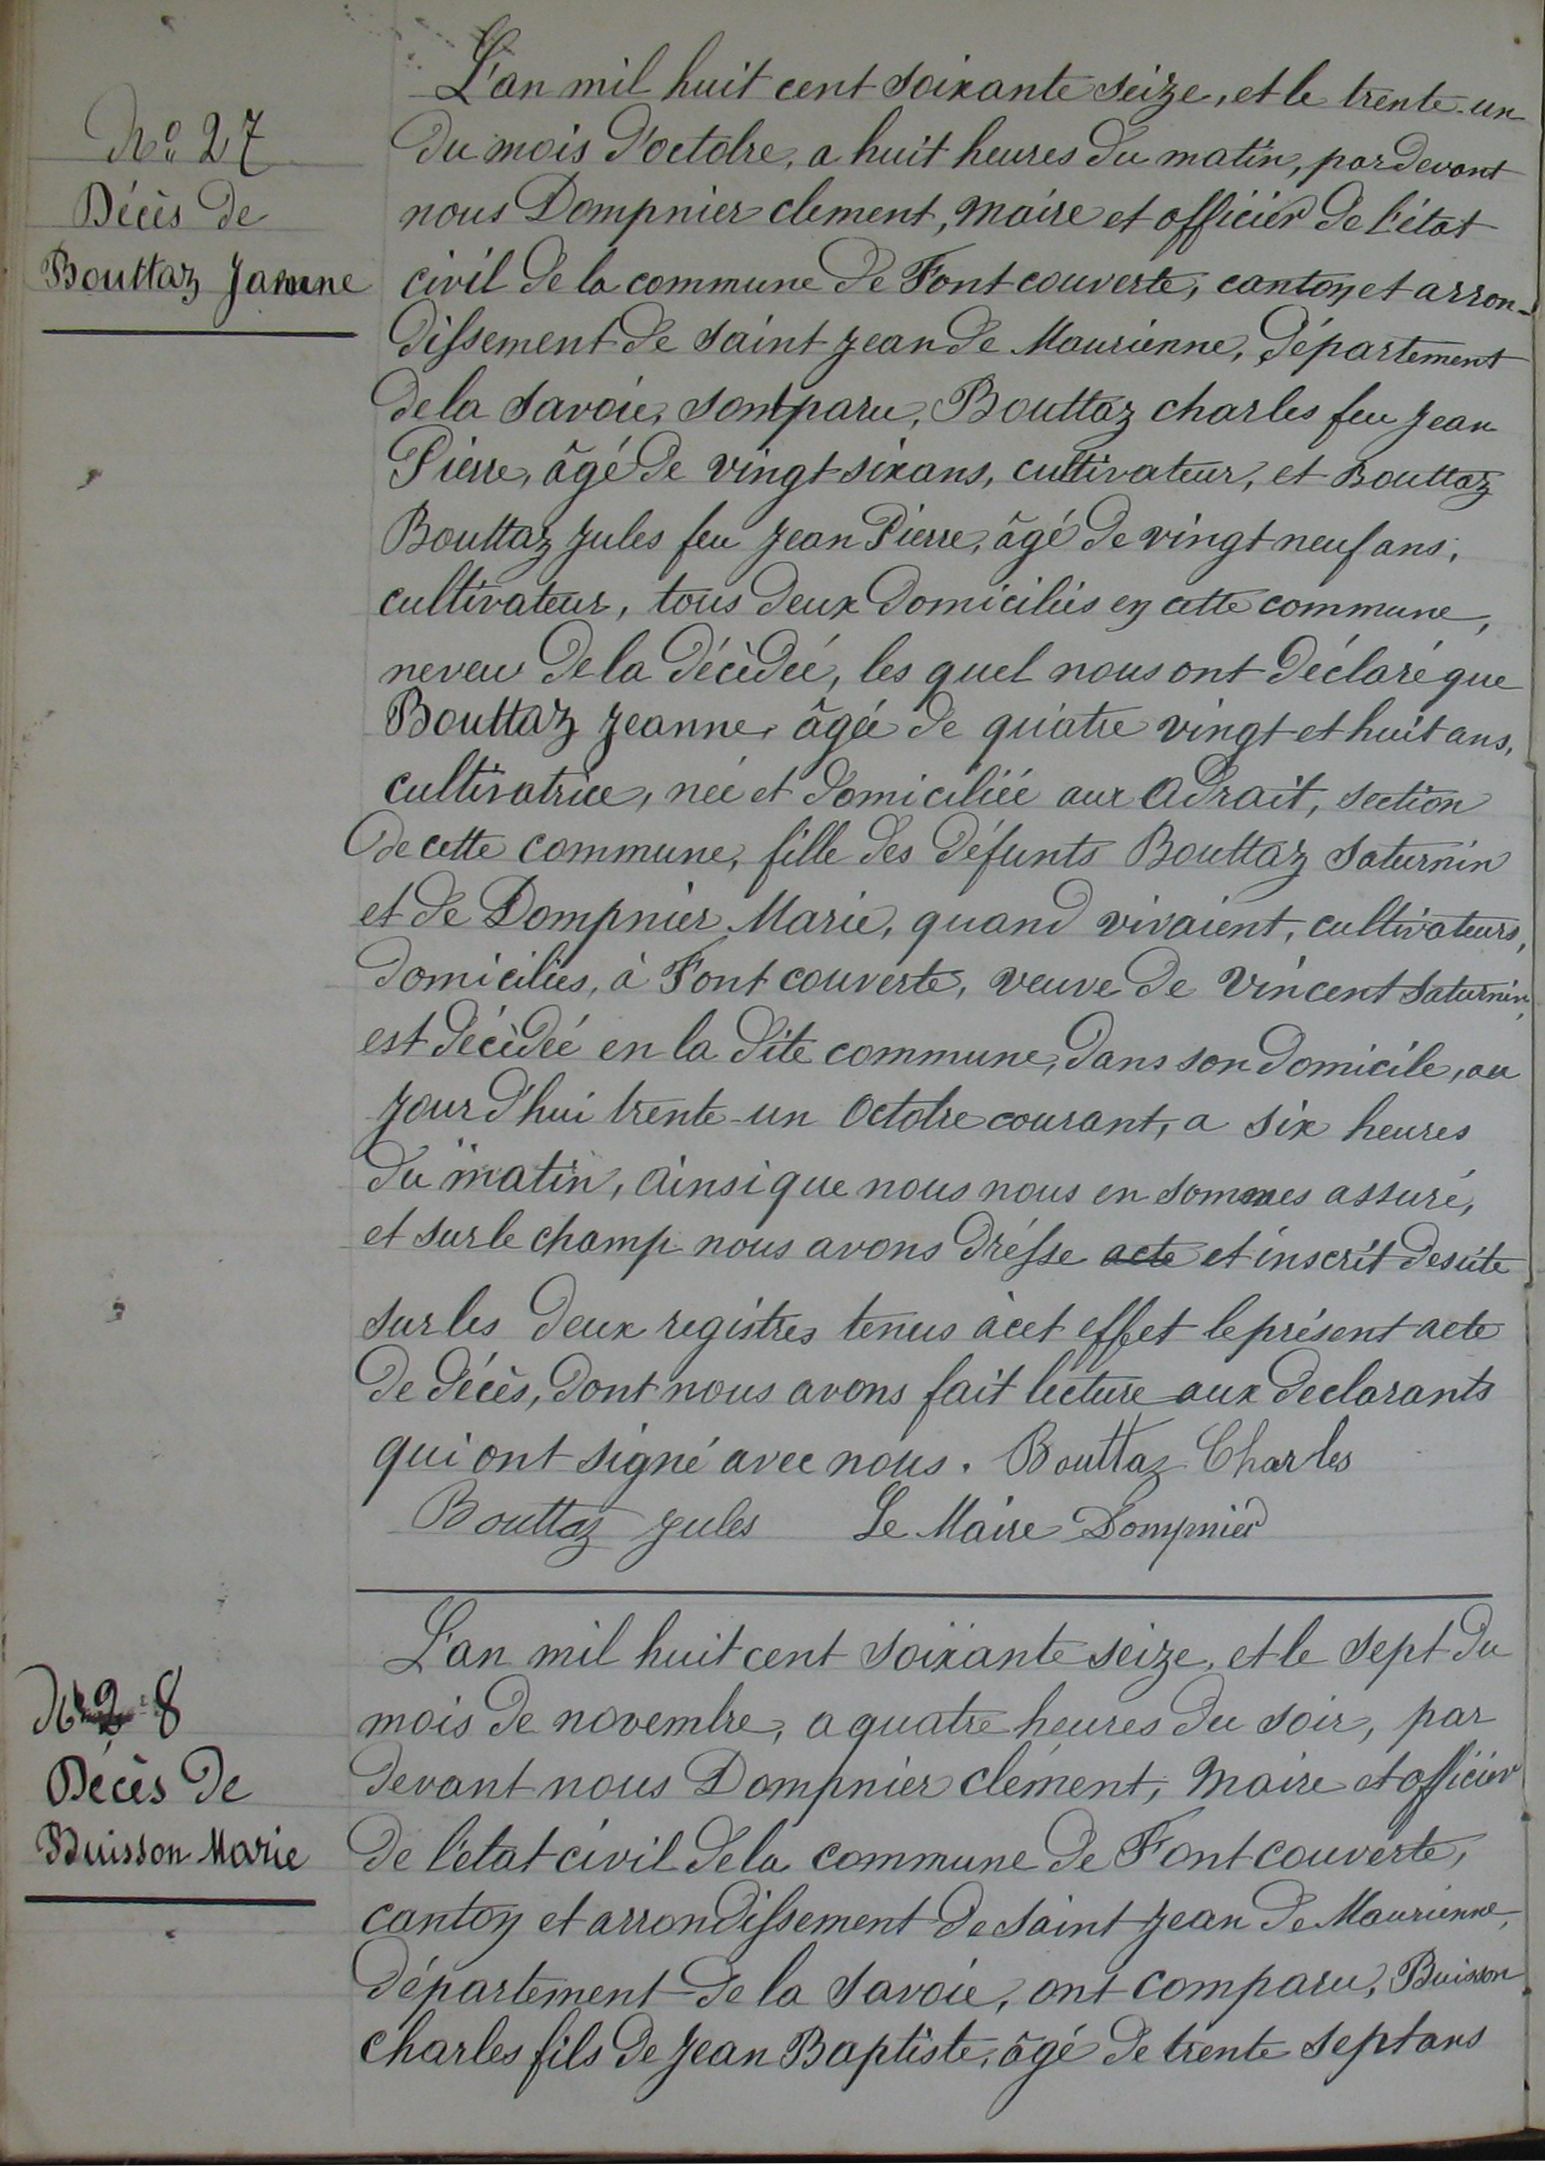 N.o 27
Décès de
Bouttaz Jeanne
L'an mil huit cent soixante seize, et le trente-un
du mois d'octobre, a huit heures du matin, par devant
nous Dompnier clement, maire et officier de l'état
civil de la commune de Fontcouverte, canton et arron-
dissement de Saint Jean de Maurienne, département
de la Savoie, sont paru, Bouttaz charles feu Jean
Pierre, âgé de vingt six ans, cultivateur, et Bouttaz
Bouttaz Jules feu Jean Pierre, âgé de vingt neuf ans,
cultivateur, tous deux domiciliés en cette commune,
neveu de la décèdeé, les quel nous ont déclaré que
Bouttaz Jeanne, âgée de quatre vingt et huit ans,
cultivatrice, neé et domiciliée aux Adrait, section
de cette commune, fille des défunts Bouttaz Saturnin
et de Dompnier Marie, quand vivaient, cultivateurs,
domiciliés, à Fontcouverte, veuve de Vincent Saturnin,
est décèdeé en la dite commune, dans son domicile, au
jour d'hui trente-un Octobre courant, a six heures
du matin, ainsi que nous nous en sommes assuré,
et sur le champ nous avons drésse acte et inscrit desuite
sur les deux registres tenus à cet effet le présent acte
de décès, dont nous avons fait lecture aux declarants
qui ont signé avec nous. Bouttaz Charles
Bouttaz Jules Le Maire Dompnier
N.o 28
Décès de
Buisson Marie
L'an mil huit cent soixante seize, et le sept du
mois de novembre, a quatre heures du soir, par
devant nous Dompnier clément, maire et officier
de l'état civil de la commune de Fontcouverte,
canton et arrondissement de Saint Jean de Maurienne,
département de la Savoie, ont comparu, Buisson
charles fils de Jean Baptiste, âgé de trente sept ans